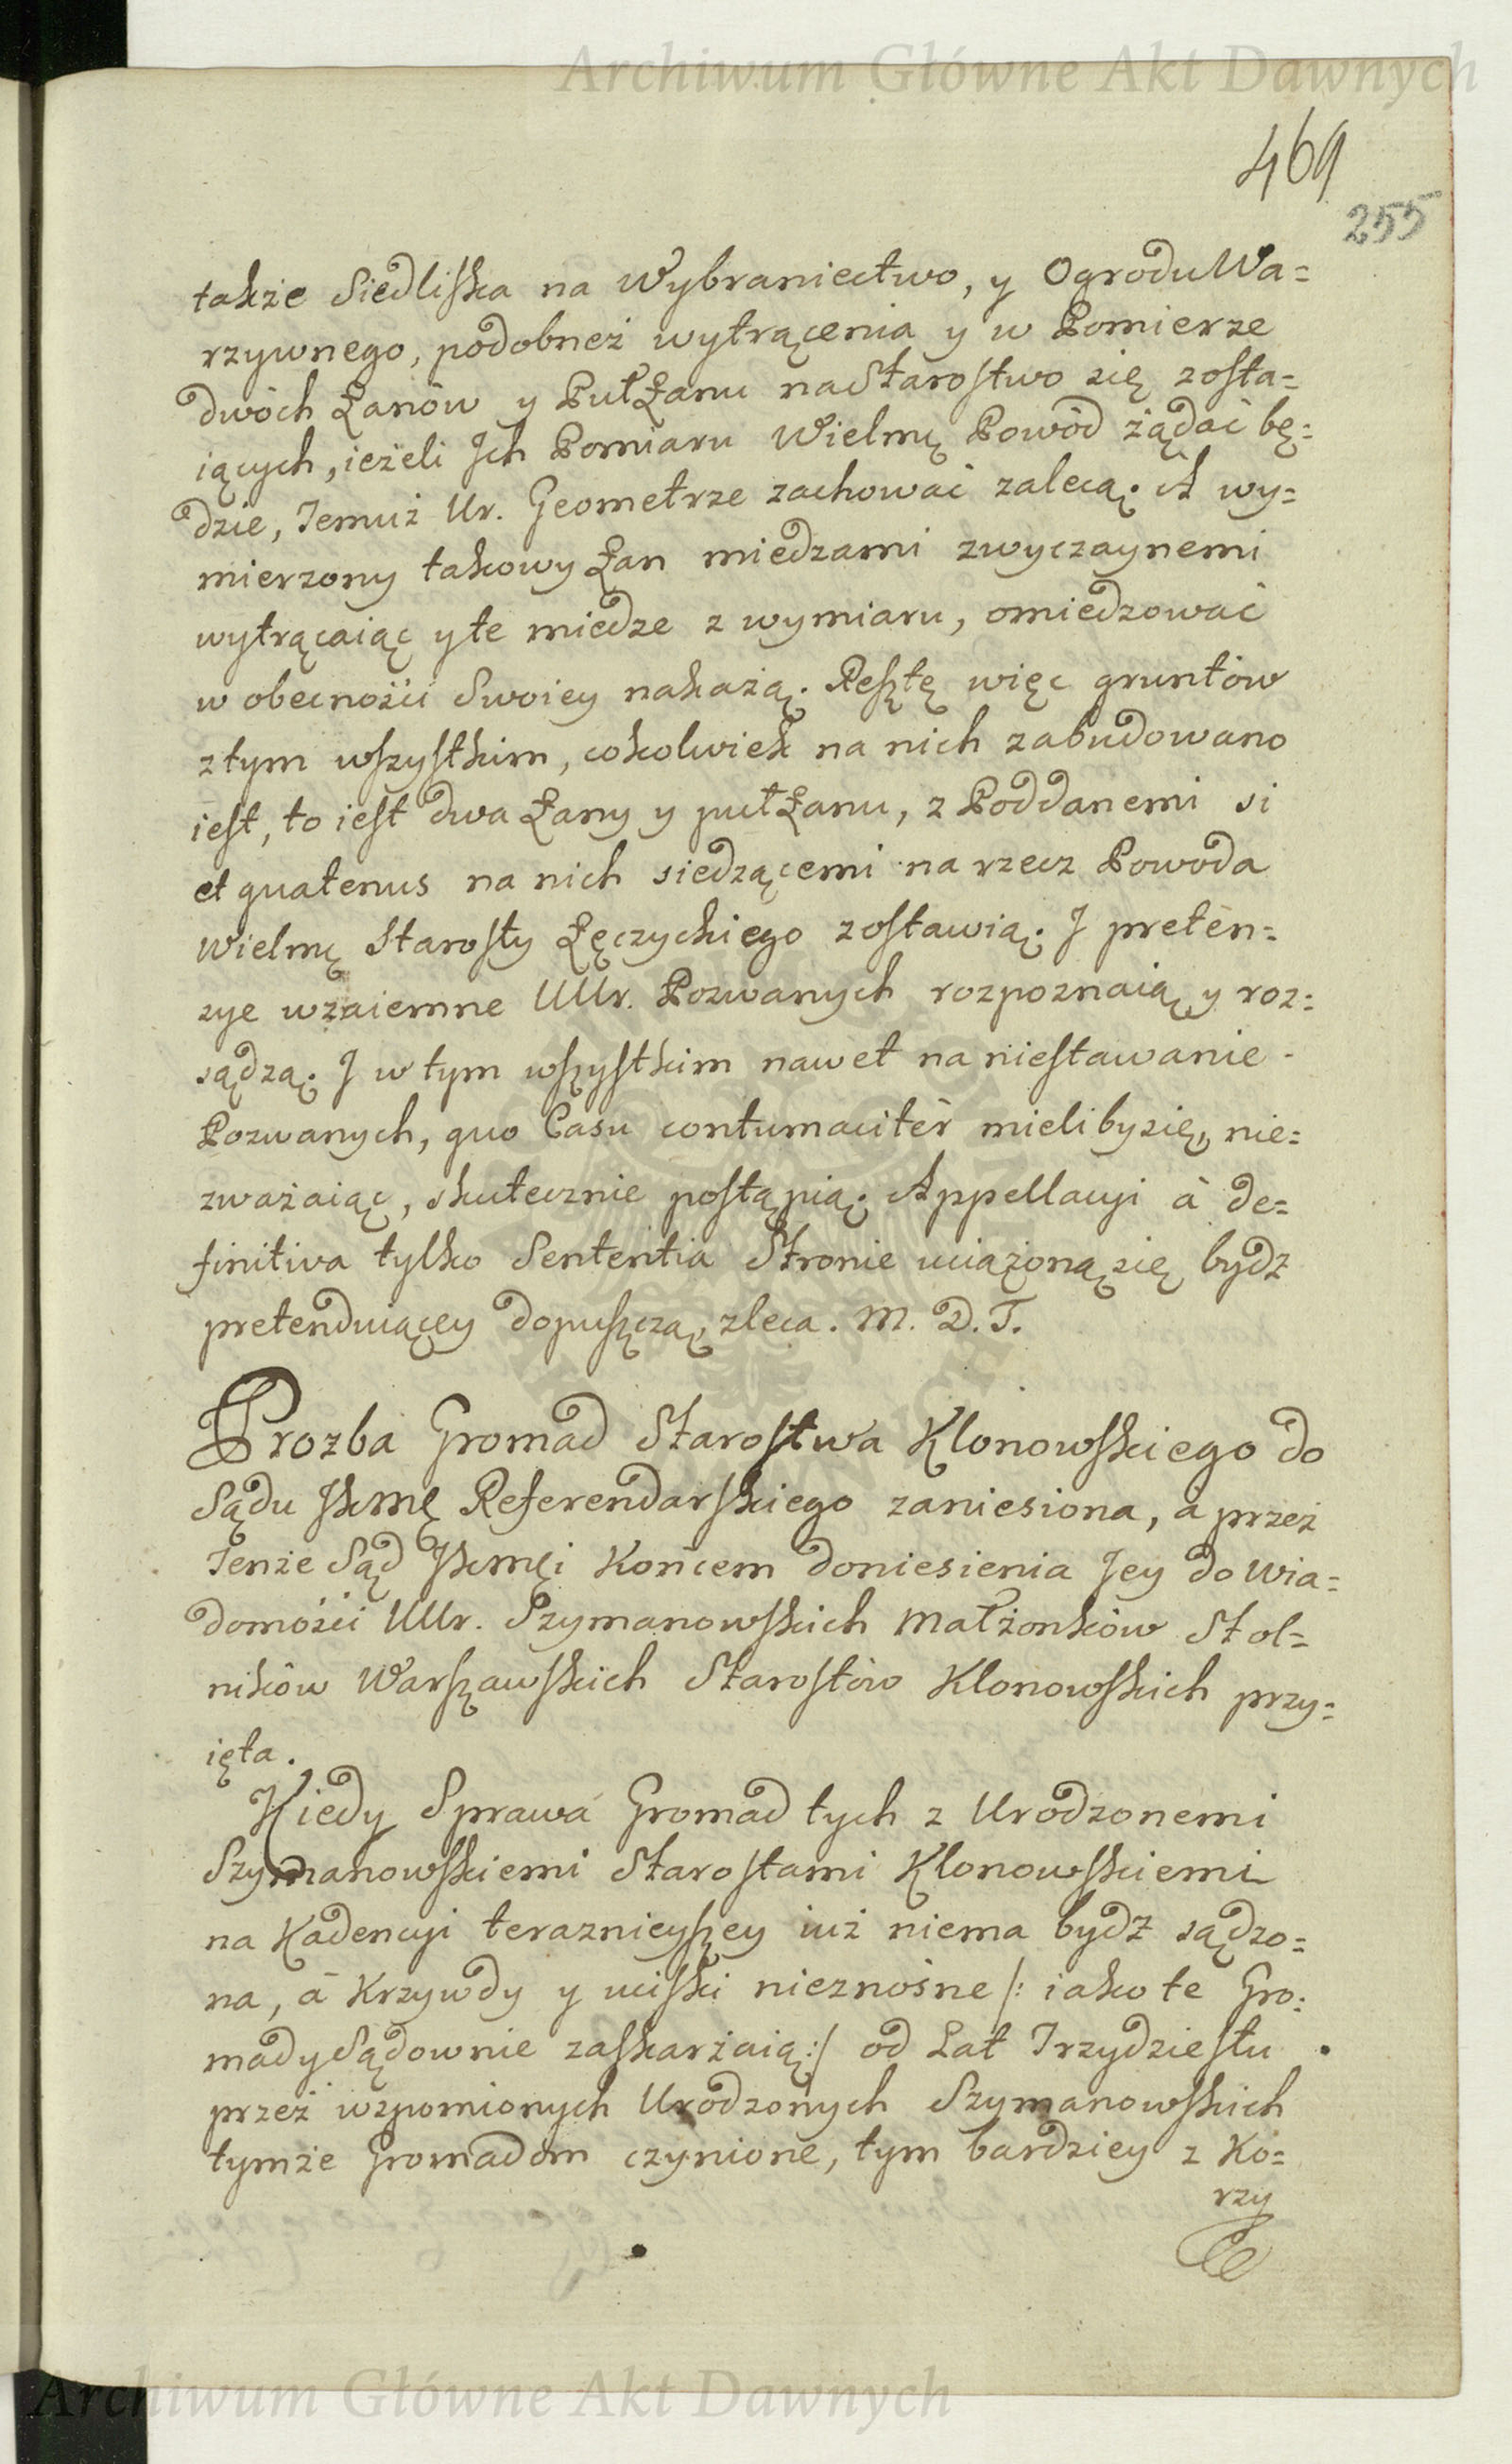 Archiwum Główne Akt Dawnych
469
255
także Siedliska na Wybraniectwo, y Ogrodu Wa=
rzywnego, podobneż wytrącenia y w Pomierze
dwóch Łanów y Puł Łanu na Starostwo się zosta=
iących, ieżeli Jch Pomiaru Wielmę Powód żądać bę=
dzie, Temuż Ur. Geometrze zachować zalecą. A wy=
mierzony takowy Łan miedzami zwyczaynemi
wytrącaiąc y te miedze z wymiaru, omiedzować
w obecności Swoiey nakażą. Resztę więc gruntów
z tym wszystkim, cokolwiek na nich zabudowano
iest, to iest dwa Łany y puł Łanu, z Poddanemi si
et quatenus na nich siedzącemi na rzecz Powoda
Wielmę Starosty Łęczyckiego zostawią. J preten=
zye wzaiemne UUr. Pozwanych rozpoznaią y roz=
sądzą. J w tym wszystkim nawet na niestawanie
Pozwanych, quo Casu contumacitèr mieliby się, nie=
zważaiąc, skutecznie postąpią. Appellacyi à de=
finitiva tylko Sententia Stronie uciążoną się bydź
pretenduiącey dopuszczą, zleca. M. D. T.
Prozba Gromad Starostwa Klonowskiego do
Sądu Jkmę Referendarskiego zaniesiona, a przez
Tenże Sąd Jkmęi końcem doniesienia Jey do wia=
domości UUr. Szymanowskich Małżonków Stol=
ników Warszawskich Starostów Klonowskich przy=
ięta.
Kiedy Sprawa Gromad tych z Urodzonemi
Szymanowskiemi Starostami Klonowskiemi
na Kadencyi teraznieyszey iuż niema bydź sądzo=
na, à Krzywdy y uciski nieznośne /: iako te Gro=
mady Sądownie zaskarżaią :/ od Lat Trzydziestu
przez wzpomionych Urodzonych Szymanowskich
tymże Gromadom czynione, tym bardziey z Ko=
rzy
Archiwum Główne Akt Dawnych